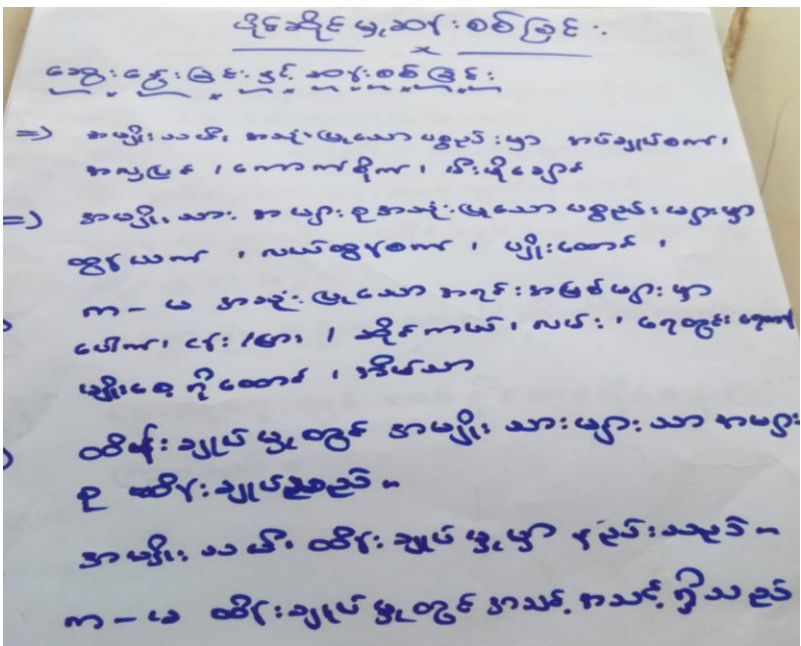 ပိုင်ဆိုင်မှုဆန်းစစ်ခြင်း
ဆွေးနွေးခြင်းနှင့် ဆန်းစစ်ခြင်း
=> အမျိုးသမီး အသုံးပြုသော ပစ္စည်းမှာ အပ်ချုပ်စက်၊
အလှပြင်၊ ကောက်စိုက်၊ မီးဖိုချောင်
=> အမျိုးသား အများစုအသုံးပြုသော ပစ္စည်းများမှာ
ထွန်ယက်၊ လယ်ထွန်စက်၊ ပျိုးထောင်၊
ကာ - မ အသုံးပြုသော အရင်းအမြစ်များမှာ
ပေါက်၊ ငန်း/မြား၊ ဆိုင်ကယ်၊ လမ်း၊ ရေတွင်းရေကန်
မျိုးစေ့ ထောင်၊ အိမ်သာ
ထိန်းချုပ်မှုတွင် အမျိုးသားများသာ အများ
စု ထိန်းချုပ်သည်။
အမျိုးသမီး ထိန်းချုပ်မှုမှာ နည်းသည်။
ကာ - မ ထိန်းချုပ်မှုတွင် အသင့်အသင့်ရှိသည်